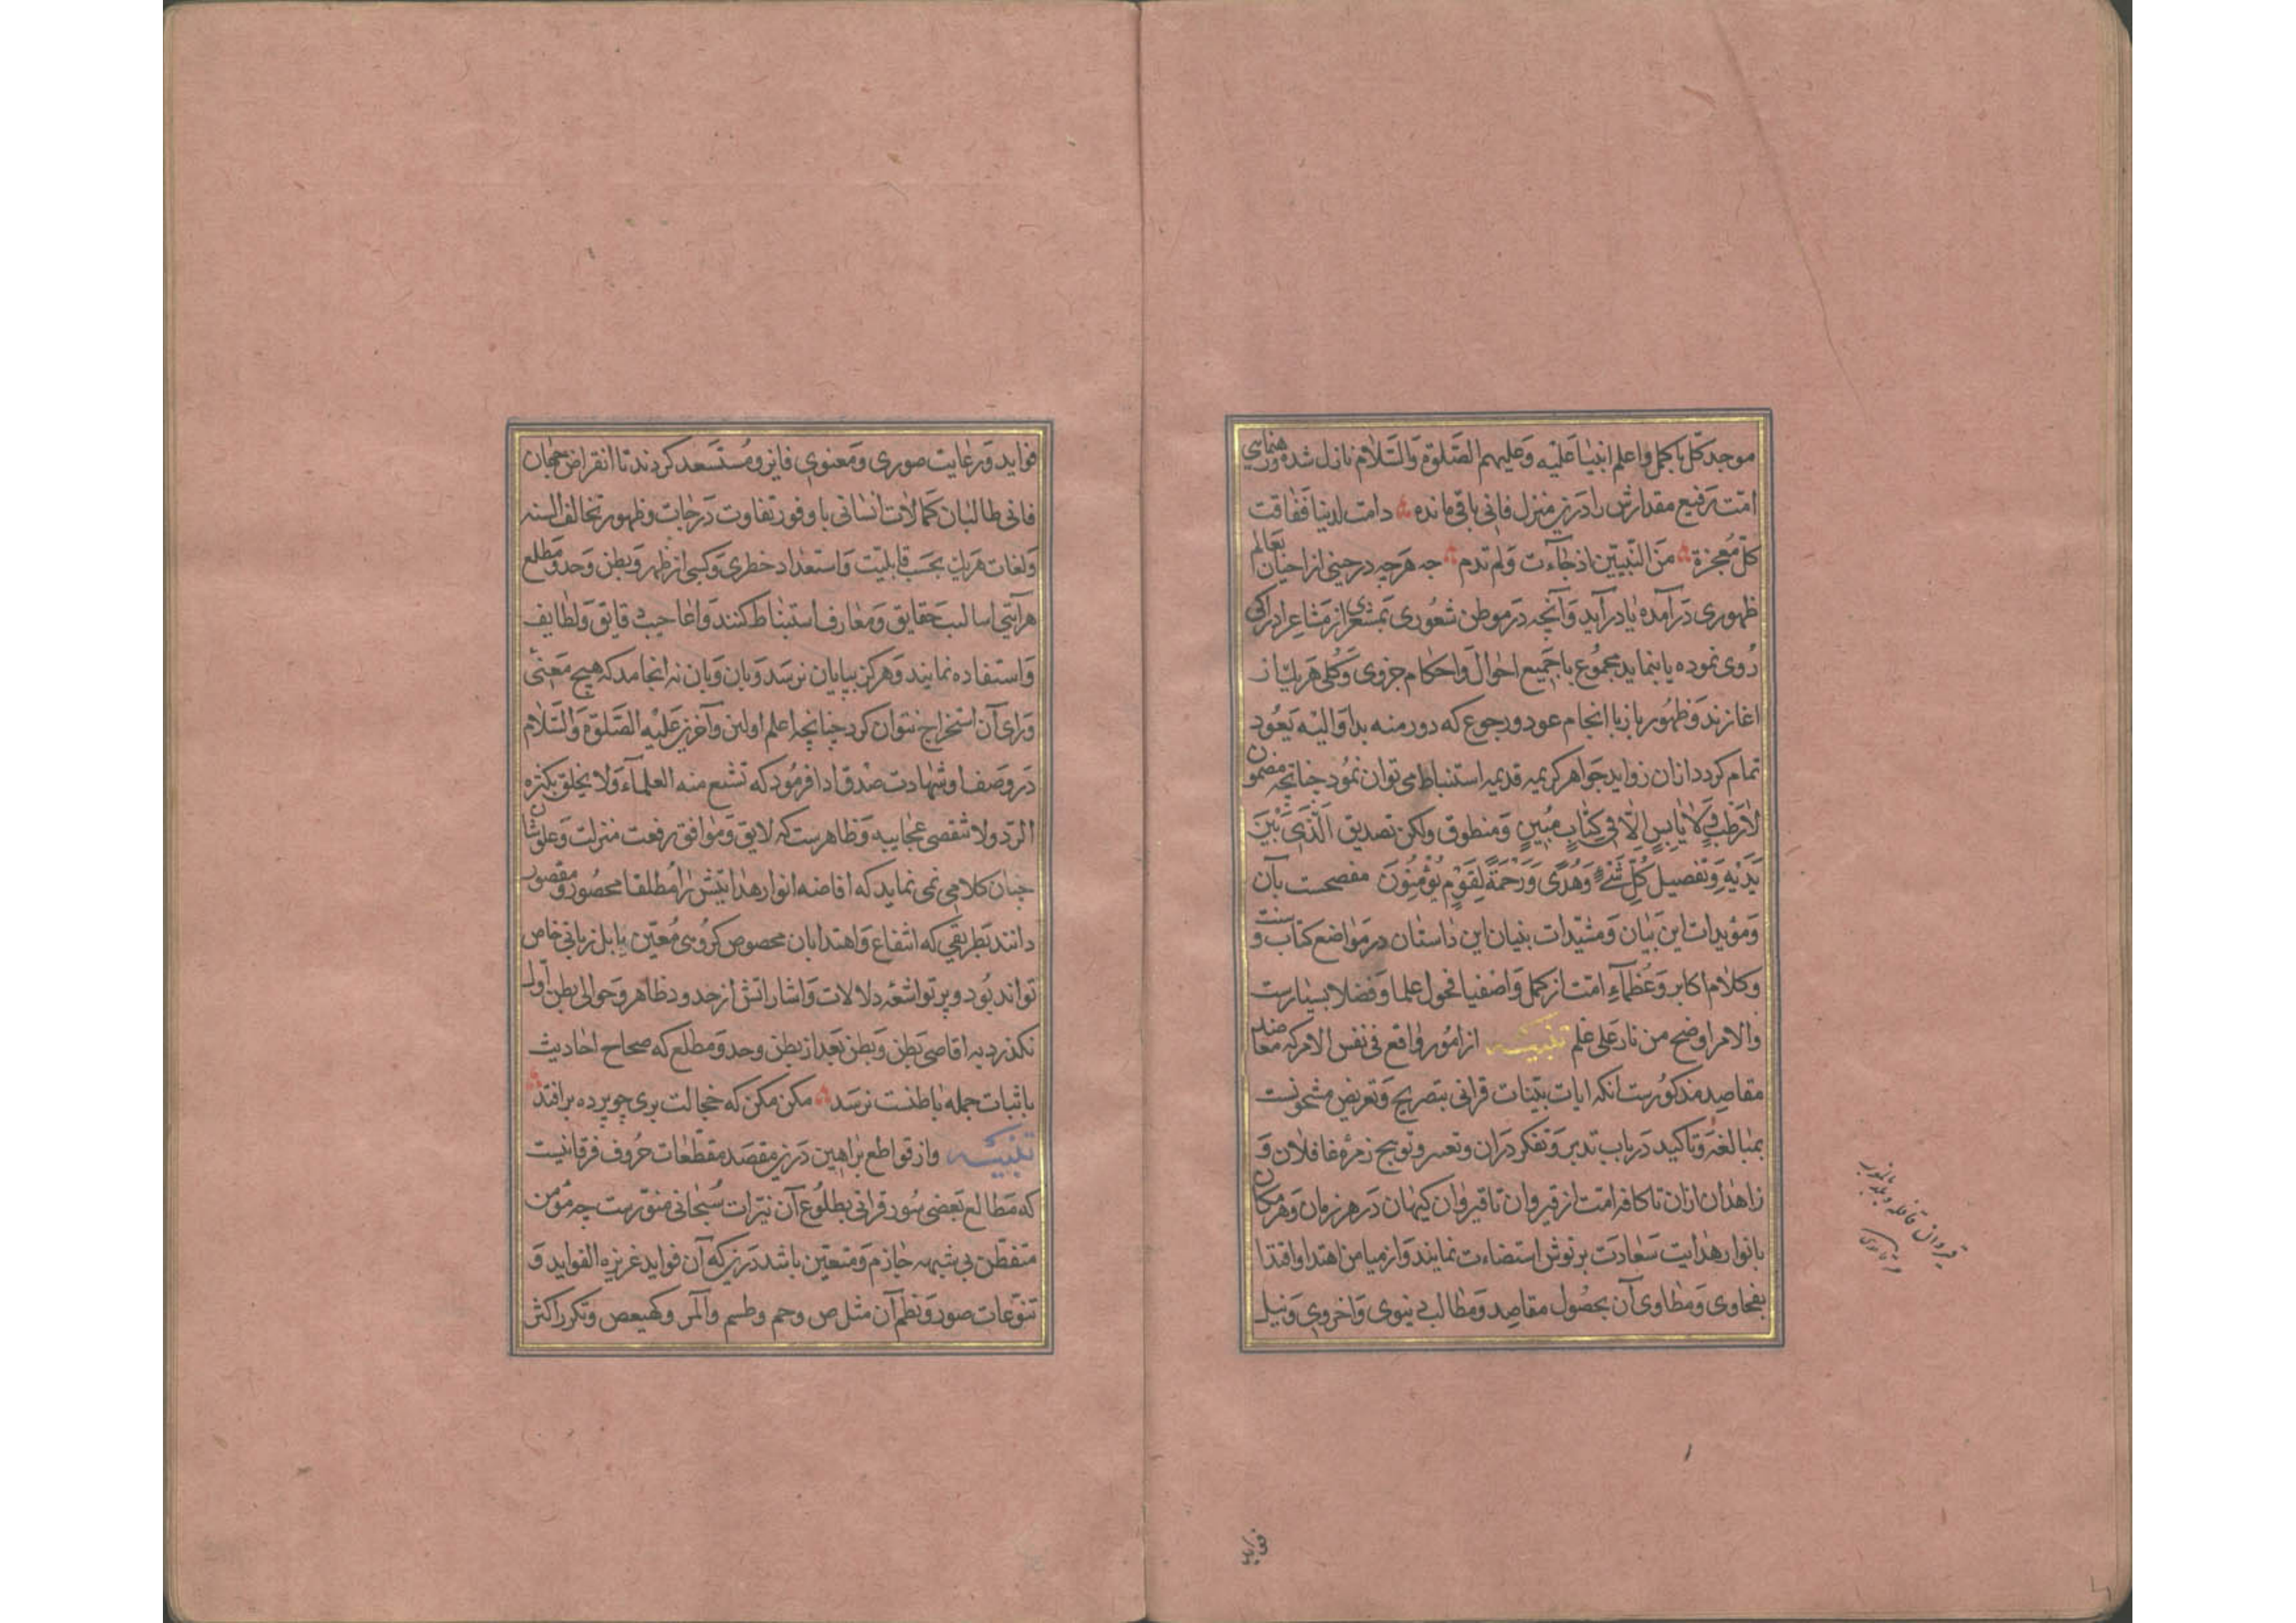 موجد کل با کمل و اعلم انبیا علیه و علیهم الصلوة والسلام نازل شده و رهنمایی
امت رفیع مقدارش را درین منزل فانی باقی مانده دامت لدینا ففاقت
کل معجزة من النبیین اذ جاءت ولم تدم جه هرچه در حینی از احیان بعالم
ظهوری در آمده یا در آید و آنچه در موطن شعوری بمشعری از مشاعر ادراکی
روی نموده یا بنماید مجموع با جمیع احوال و احکام جزوی و کلی هر یک از
اغاز زند و ظهور باز با انجام عود و رجوع که دور منه بدا و الیه یعود
تمام کردد ازان زواید جواهر کریمه قدیمه استنباط می توان نمود چنانچه مضمون
لا رطب ولا یابس الا فی کتاب مبین و منطوق ولکن تصدیق الذی بین
یدیه و تفصیل کل شیء و هدی و رحمة لقوم یؤمنون مفصحست بآن
و مؤیدات این بیان و مشیدات بنیان این داستان در مواضع کتاب و سنت
و کلام اکابر و عظماء امت از کمل و اصفیا فحول علما و فضلا بسیارست
والامر اوضح من نار علی علم تنبیه از امور واقع فی نفس الامر که معاضد
مقاصد مذکورست انکه ایات بینات قرانی بتصریح و تعریض مشحونست
بمبالغه و تاکید در باب تدبر و تفکر دران و توبیخ زمره غافلان و
زاهدان ازان تا کافه امت از قیروان تا قیروان کیهان در هر زمان و هر مکان
بانوار هدایت سعادت برتوش استضاءت نمایند و از میامن اهتدا و اقتدا
بفحاوی و مطاوی آن بحصول مقاصد و مطالب دینوی و اخروی و نیل
قیروان قافله
فواید
فواید و رعایت صوری و معنوی فایز و مستسعد کردند تا انقراض جهان
فانی طالبان کمالات انسانی با وفور تفاوت درجات و ظهور تخالف السنه
و لغات هر یک بحسب قابلیت و استعداد خطری و کسبی از ظهر و بطن وحد و مطلع
هر آیتی اسالیب حقایق و معارف استنباط کنند و اعاجیب دقایق و لطایف
و استفاده نمایند و هرکز بپایان نرسد و بان وبان نه انجامد که هیچ معنی
ورای آن استخراج نتوان کرد چنانچه اعلم اولین و آخرین علیه الصلوة والسلام
در وصف او شهادت صدق ادا فرمود که تشبع منه العلماء ولا یخلق بکثره
الرد ولا تنقضی عجایبه و ظاهرست که لایق و موافق رفعت منزلت و علو شان
چنان کلامی نمی نماید که افاضه انوار هدایتش را مطلقا محصور و مقصور
دانند بطریقی که انتفاع و اهتدا بان مخصوص کروهی معین بابل زبانی خاص
تواند بود و پرتو اشعه دلالات و اشاراتش از حدود ظاهر و حوالی بطن اول
نکذرد به اقاصی بطن و بطن بعد از بطن وحد و مطلع که صحاح احادیث
باثبات جمله باطنست نرسد مکن مکن که خجالت بری چو پرده برافتد
تنبیه و از قواطع براهین درین مقصد مقطعات حروف فرقانیست
که مطالع بعضی سور قرانی بطلوع آن نیرات سبحانی منورست چه مؤمن
متفطن بی شبهه جازم و متعین باشد درین که آن فواید غزیره الفواید و
تنوعات صور و نظم آن مثل ص و حم و طسم و المر و کهیعص و تکرر اکثر